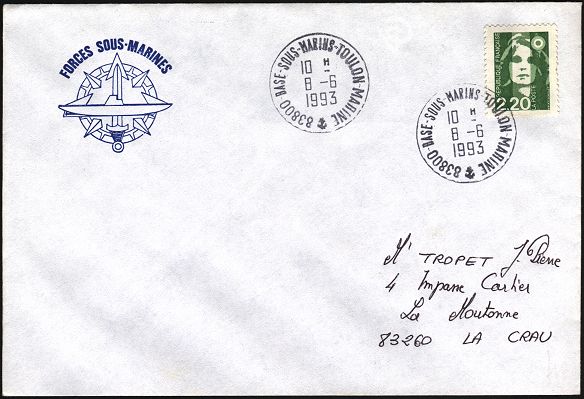 FORCES SOUS-MARINES
83800-BASE-SOUS-MARINS-TOULON-MARINE
10 H
8 - 6
1993
REPUBLIQUE FRANÇAISE
2,20
LA POSTE
83800-BASE-SOUS-MARINS-TOULON-MARINE
10 H
8 - 6
1993
Mr TROPET J. Pierre
4 Impasse Cartier
La Moutonne
83260 LA CRAU